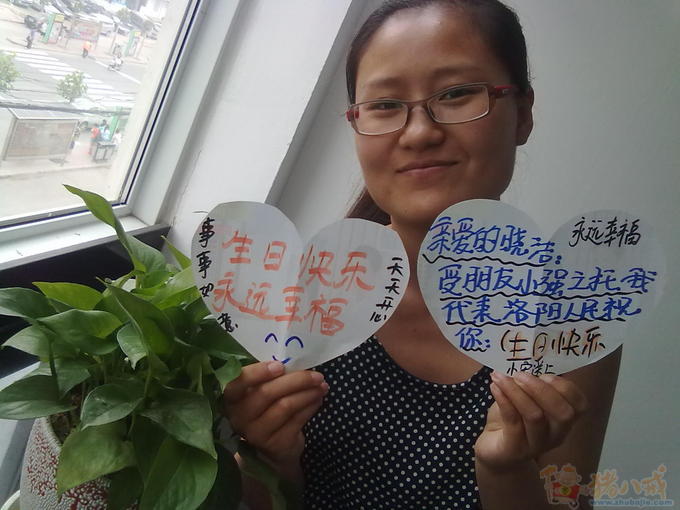 事事如意
生日快乐
永远幸福
天天开心
永远幸福
亲爱的晓洁:
受朋友小强之托,我
代表洛阳人民祝
你:(生日快乐
猪八戒
www.zhubajie.com